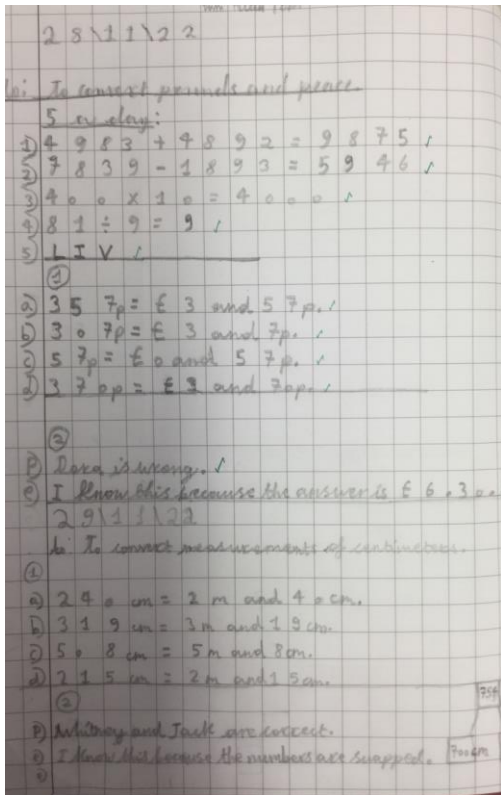 28\11\22
Lo: To convert pounds and pence.
5 a day:
1) 4983 + 4892 = 9875
2) 7839 - 1893 = 5946
3) 400 x 10 = 4000
4) 81 ÷ 9 = 9
5) LIV
1
a) 357p = £3 and 57p.
b) 307p = £3 and 7p.
c) 57p = £0 and 57p.
d) 370p = £3 and 70p.
2
P) is wrong.
E) I know this because the answer is £6.30.
29\11\22
Lo: To convert measurements of centimeters.
1
a) 240cm = 2m and 40cm.
b) 319cm = 3m and 19cm.
c) 508cm = 5m and 8cm.
d) 215cm = 2m and 15cm.
2
P) Whitney and Jack are correct.
E) I know this because the numbers are swapped.